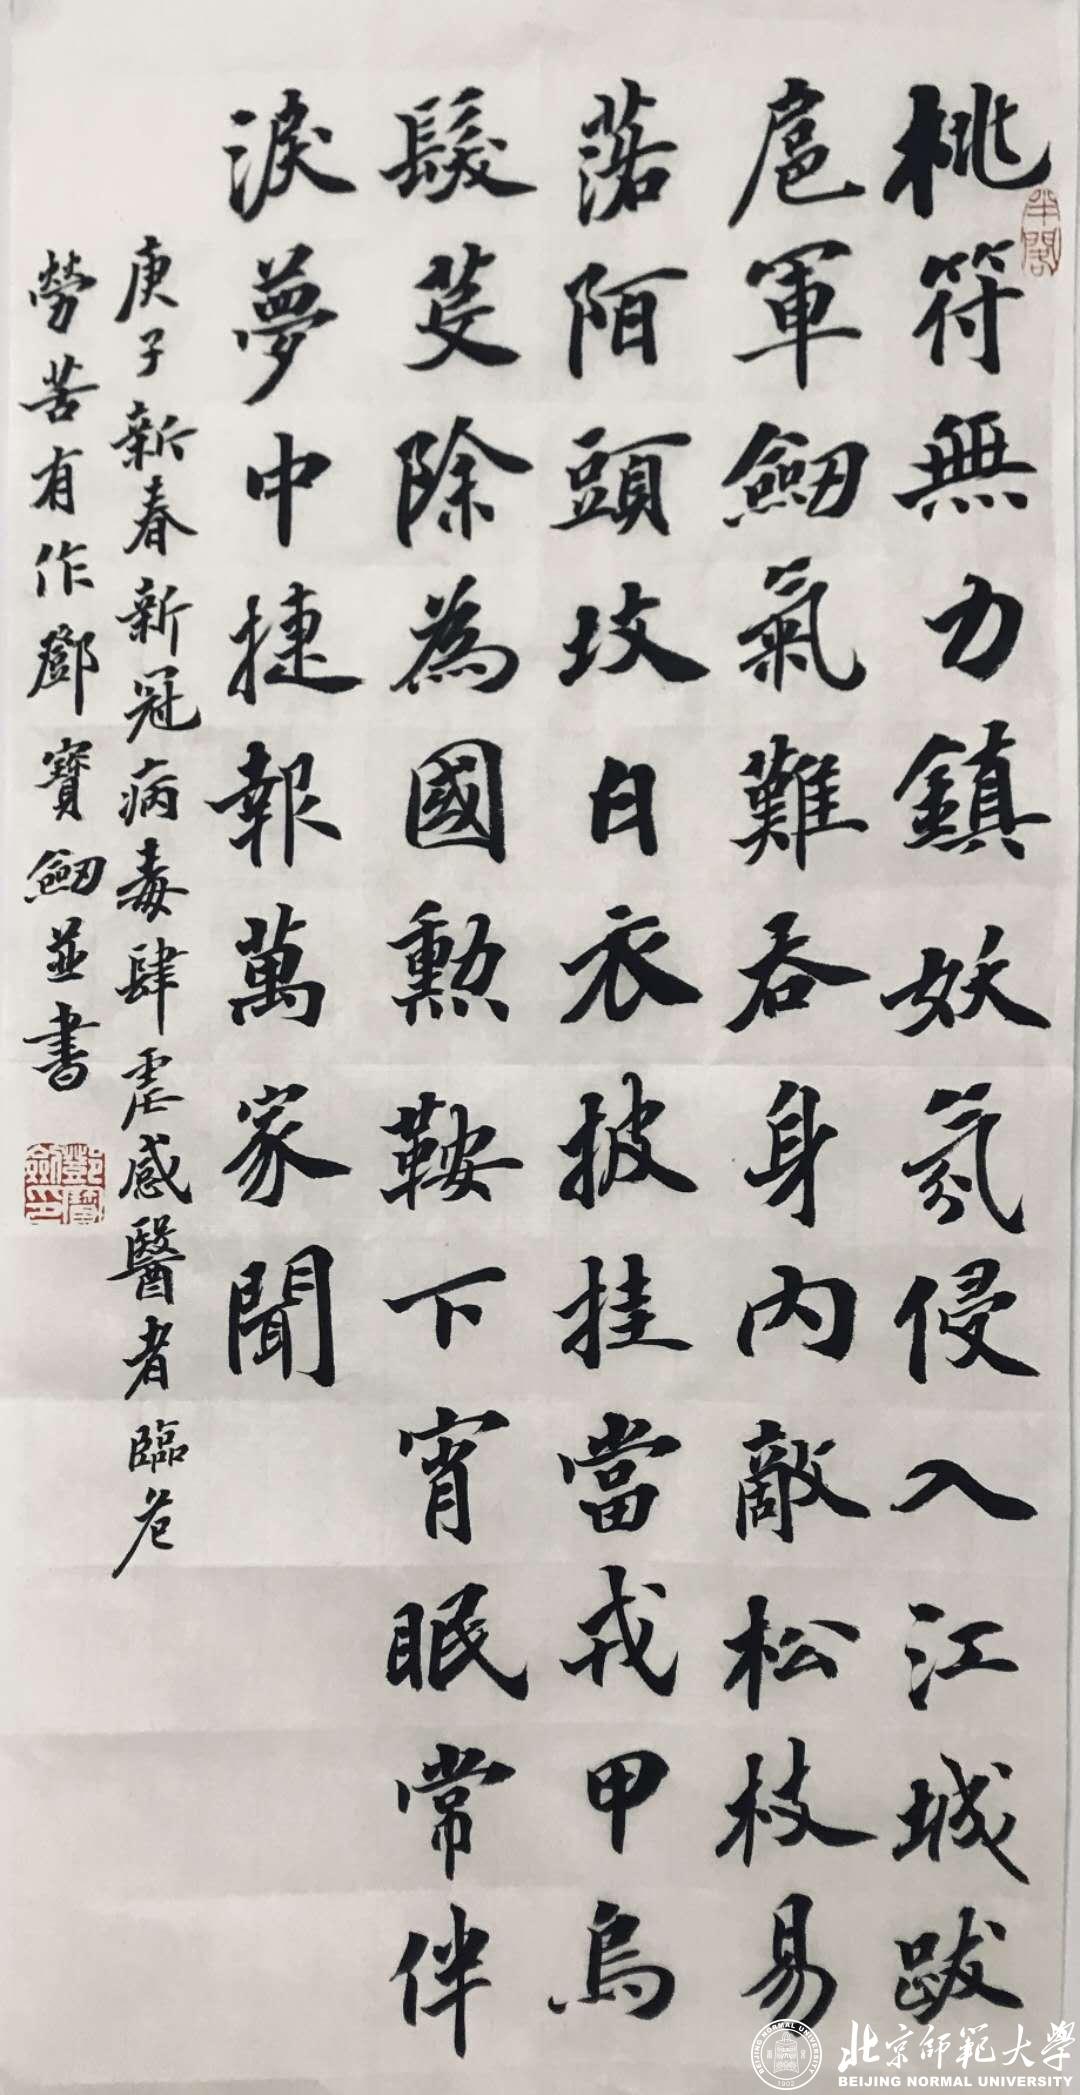 桃符無力鎮妖氛侵入江城跋
扈軍劒氣難吞身內敵松枝易
落陌頭坟白衣披挂當戎甲烏
髮芟除為國勲鞍下宵眠常伴
淚夢中捷報萬家聞
庚子新春新冠病毒肆虐感醫者臨危
勞苦有作鄧寶劒並書
鄧寶劍印
北京師範大學
BEIJING NORMAL UNIVERSITY
BEIJING NORMAL UNIVERSITY
1902